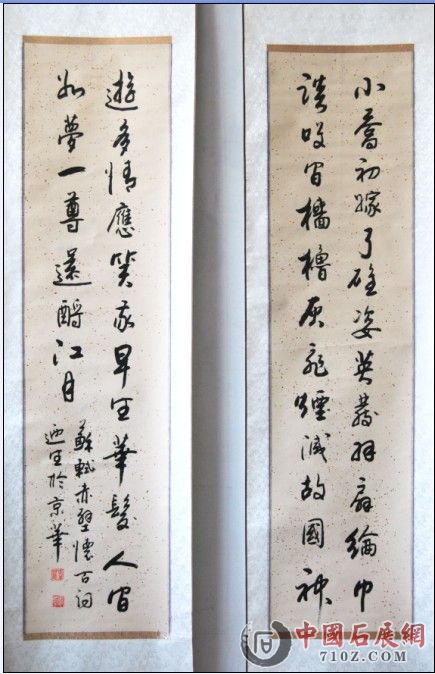 小喬初嫁了雄姿英發羽扇綸巾
談咲間檣櫓灰飛煙滅故國神
遊多情應笑我早生華髮人間
如夢一尊還酹江月
蘇軾赤壁懷古詞
迺生於京華
中國石展網
710Z.COM